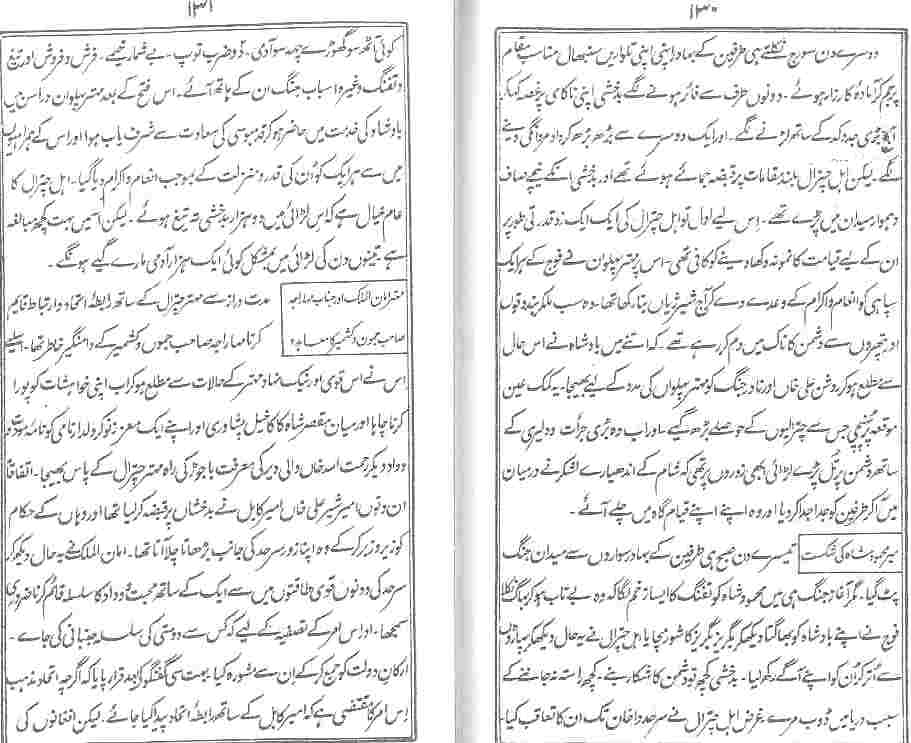 ۱۳۰
دوسرے دن سورج نکلتے ہی طرفین کے بہادر اپنی اپنی تلواریں سنبھال مناسب مقام
پر جم کر آمادۂ کارزار ہوئے ۔ دونوں طرف سے فائر ہونے لگے بدخشی اپنی ناکامی پر غصہ کہا کر
بڑی جدوکد کے ساتھ لڑنے لگے ۔ اور ایک دوسرے سے بڑھ بڑھ کر داد مردانگی دینے
لگے ۔ لیکن اہل چترال بلند مقامات پر قبضہ جمائے ہوئے تھے اور بدخشی انکے نیچے صاف
وہموار میدان میں پڑے تھے ۔ اس لیے اول تو اہل چترال کی ایک ایک زد قدرتی طور پر
ان کے لیے قیامت کا نمونہ دکھا دینے کو کافی تھی ۔ اس پر مہتر پہلوان نے فوج کے ہر ایک
سپاہی کو انعام واکرام کے وعدے دے کر آج شیر ژیاں بنا رکھا تھا ۔ وہ سب ملکر بندوقوں
اور پتھروں سے دشمن کا ناک میں دم کر رہے تھے ۔ کہ اتنے میں بادشاہ نے اس حال
سے مطلع ہو کر روشن علی خاں اور نادر جنگ کو مہتر پہلوان کی مدد کے لیے بھیجا ۔ یہ کمک عین
موقعہ پر پہنچی جس سے چترالیوں کے حوصلے بڑھ گیے ۔ اور اب وہ بڑی جرأت و دلیری کے
ساتھ دشمن پر ٹل پڑے لڑائی ابھی زوروں پر تھی کہ شام کے اندھیارے لشکر نے درمیان
میں آکر طرفین کو جدا جدا کر دیا اور وہ اپنے اپنے قیام گاہ میں چلے آئے ۔
میر محمود شاہ کی شکست
تیسرے دن صبح ہی طرفین کے بہادر سواروں سے میدان جنگ
پٹ گیا ۔ مگر آغاز جنگ ہی میں محمود شاہ کو تفنگ کا ایسا زخم لگا کہ وہ بے تاب ہو کر بھاگ نکلا
فوج نے اپنے بادشاہ کو بھاگتا دیکھکر بگریز بگریز کا شور مچایا اہل چترال نے یہ حال دیکھکر پہاڑوں
سے اتر کر ان کو اپنے آگے رکھ لیا ۔ بدخشی کچھ تو دشمن کا شکار بنے ۔ کچھ راستہ نہ جاننے کے
سبب دریا میں ڈوب مرے ۔ غرض اہل چترال نے سرحد واخان تک ان کا تعاقب کیا ۔
۱۳۱
کوئی آٹھ سو گھوڑے چھہ سو آدمی ۔ دو ضرب توپ ۔ بے شمار خیمے ۔ فرش و فروش اور تیغ
و تفنگ وغیرہ اسباب جنگ ان کے ہاتھ آئے ۔ اس فتح کے بعد مہتر پہلوان دراسن میں
بادشاہ کی خدمت میں حاضر ہو کر قدمبوسی کی سعادت سے شرف یاب ہوا اور اس کے ہمراہیوں
میں سے ہر ایک کو ان کی قدر و منزلت کے بموجب انعام واکرام دیا گیا ۔ اہل چترال کا
عام خیال ہے کہ اس لڑائی میں دو ہزار بدخشی تہ تیغ ہوئے ۔ لیکن اسمیں بہت کچھ مبالغہ
ہے تینوں دن کی لڑائی میں بمشکل کوئی ایک ہزار آدمی مارے گیے ہونگے ۔
مہتر امان الملک اور جناب مہاراجہ
صاحب جموں و کشمیر کا معاہدہ
مدت دراز سے مہتر چترال کے ساتھ رابطۂ اتحاد و ارتباط قایم
کرنا مہاراجہ صاحب جموں و کشمیر کے دامنگیر خاطر تھا ۔ اسلیے
اس نے اس قومی اور نیک نہاد مہتر کے حالات سے مطلع ہو کر اب اپنی خواہشات کو پورا
کرنا چاہا اور میان مقصر شاہ کاکا خیل پشاوری اور اپنے ایک معزز نوکر دلدار نامی کو نامہ مودت و
وداد دیکر رحمت اللہ خاں والی دیر کی معرفت باجوڑ کی راہ مہتر چترال کے پاس بھیجا ۔ اتفاقاً
ان دنوں امیر شیر علی خاں امیر کابل نے بدخشاں پر قبضہ کر لیا تھا اور وہاں کے حکام
کو زیر و زبر کر کے وہ اپنا زور سرحد کی جانب بڑھاتا چلا آتا تھا ۔ امان الملک نے یہ حال دیکھکر
سرحد کی دونوں قوی طاقتوں میں سے ایک کے ساتھ محبت و وداد کا سلسلہ قائم کرنا ضروری
سمجھا ۔ اور اس امر کے تصفیہ کے لیے کہ کس سے دوستی کی سلسلہ جنبانی کی جائے ۔
ارکان دولت کو جمع کر کے ان سے مشورہ کیا ۔ بہت سی گفتگو کے بعد قرار پایا کہ اگرچہ اتحاد مذہب
اس امر کا مقتضی ہے کہ امیر کابل کے ساتھ رابطۂ اتحاد پیدا کیا جائے ۔ لیکن افغانوں کی